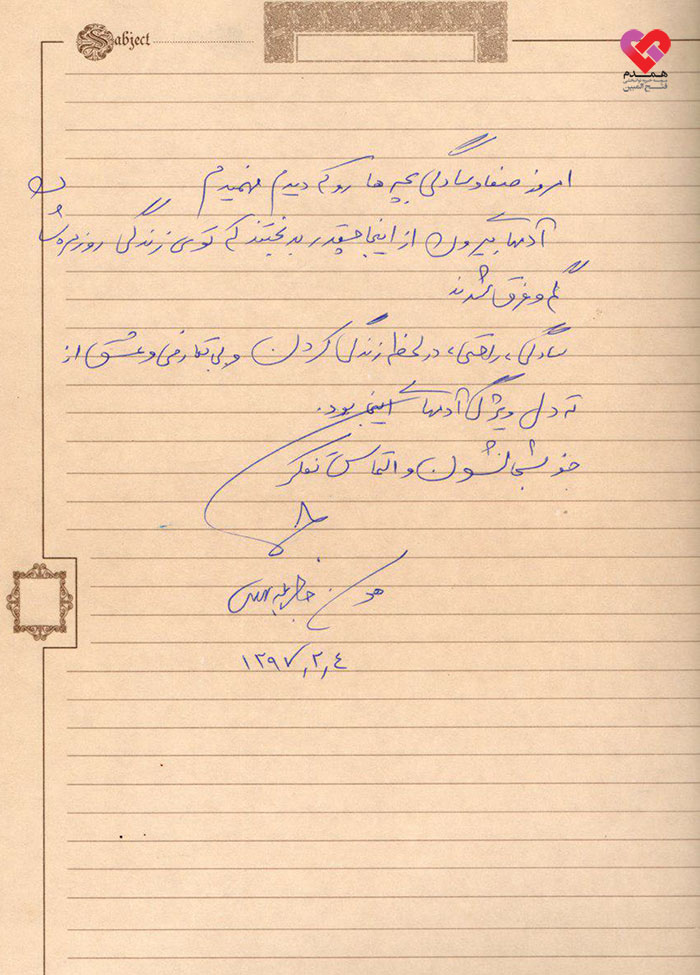 Subject
همدم
موسسه خیریه توانبخشی
فتح المبین
امروز صفا و سادگی بچه ها رو که دیدم فهمیدم
آدمهای بیرون از اینجا چقدر بدبختند که توی زندگی روزمره شان
گم و غرق شدند
سادگی، راحتی، در لحظه زندگی کردن و بی تعارفی و عشق از
ته دل ویژگی آدمهای اینجا بود.
خوشبحالشون و التماس تفکر
۱۳۹۷,۲,٤